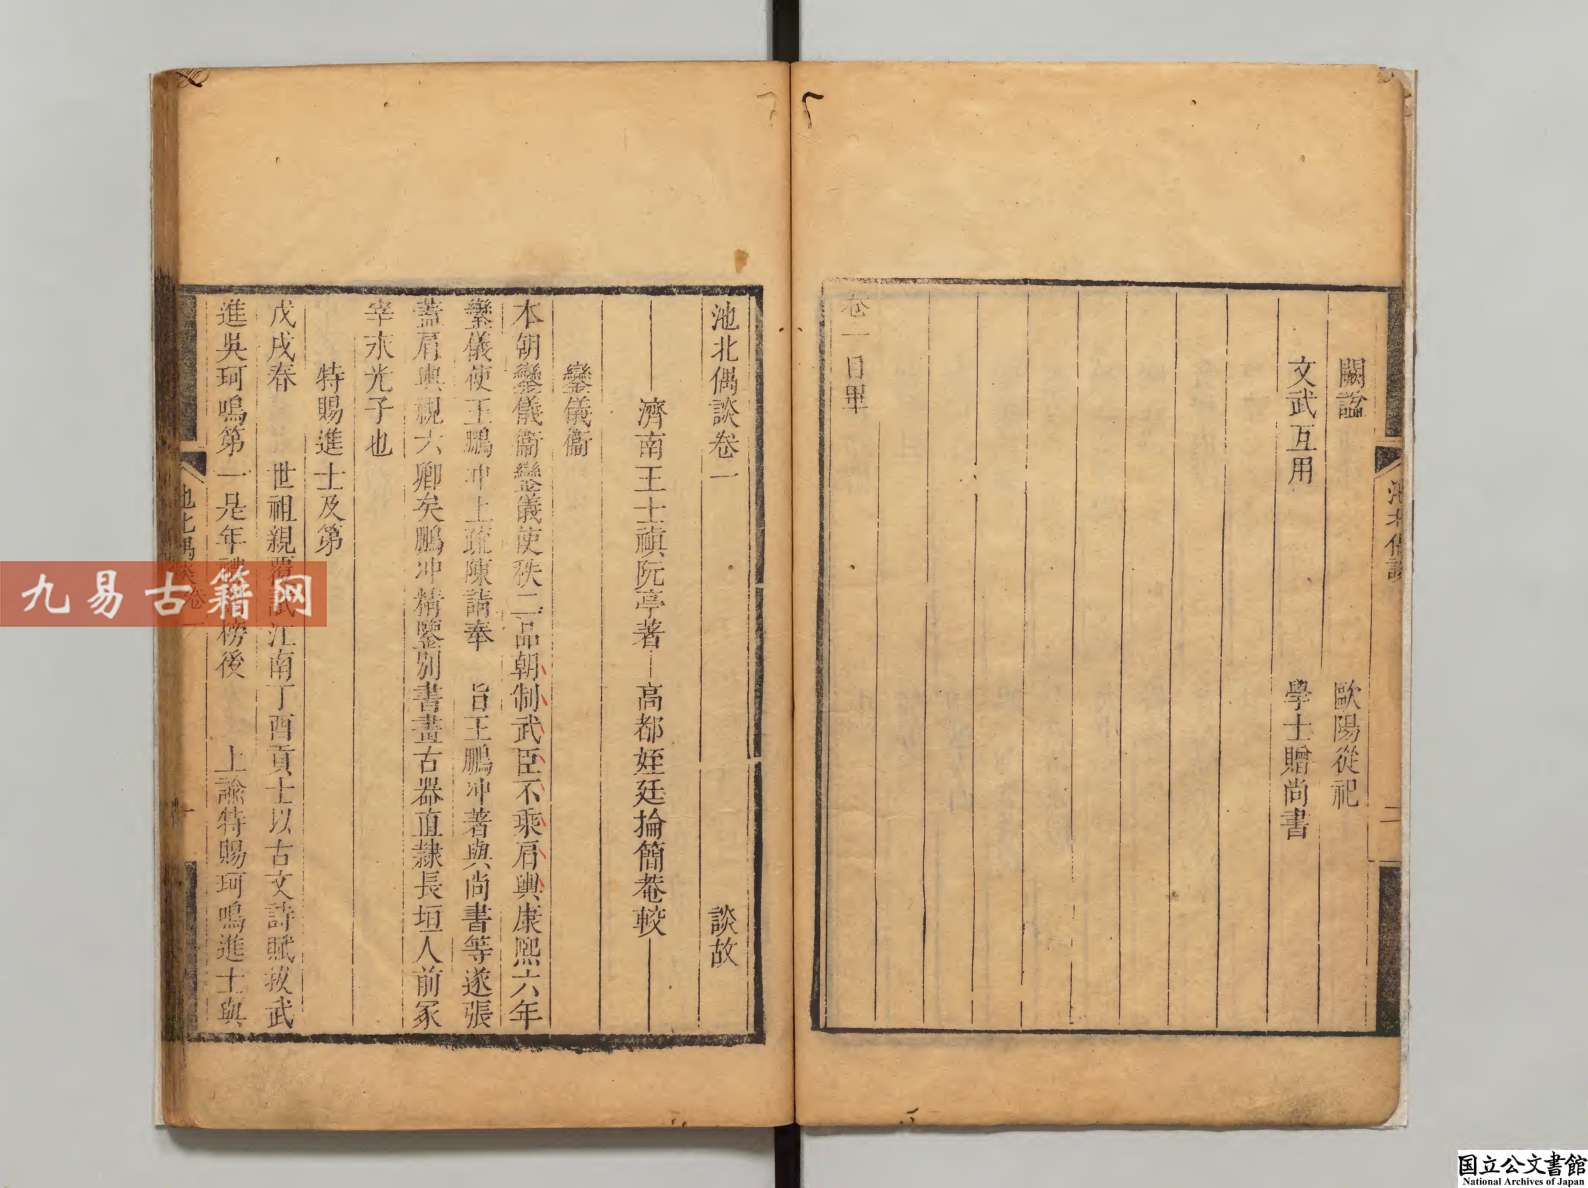 池北偶談
二
闕諡　歐陽從祀
文武互用　學士贈尚書
卷一目畢
池北偶談卷一　談故
濟南王士禛阮亭著　高都姪廷掄簡菴較
鑾儀衞
本朝鑾儀衞鑾儀使秩二品朝制武臣不乘肩輿康熙六年
鑾儀使王鵬冲上疏陳請奉　旨王鵬冲著與尚書等遂張
蓋肩輿視六卿矣鵬冲精鑒別書畫古器直隸長垣人前冢
宰永光子也
特賜進士及第
戊戌春　世祖親覆試江南丁酉貢士以古文詩賦拔武
進吳珂鳴第一是年禮榜後　上諭特賜珂鳴進士與
池北偶談卷一
一
九易古籍网
国立公文書館
National Archives of Japan